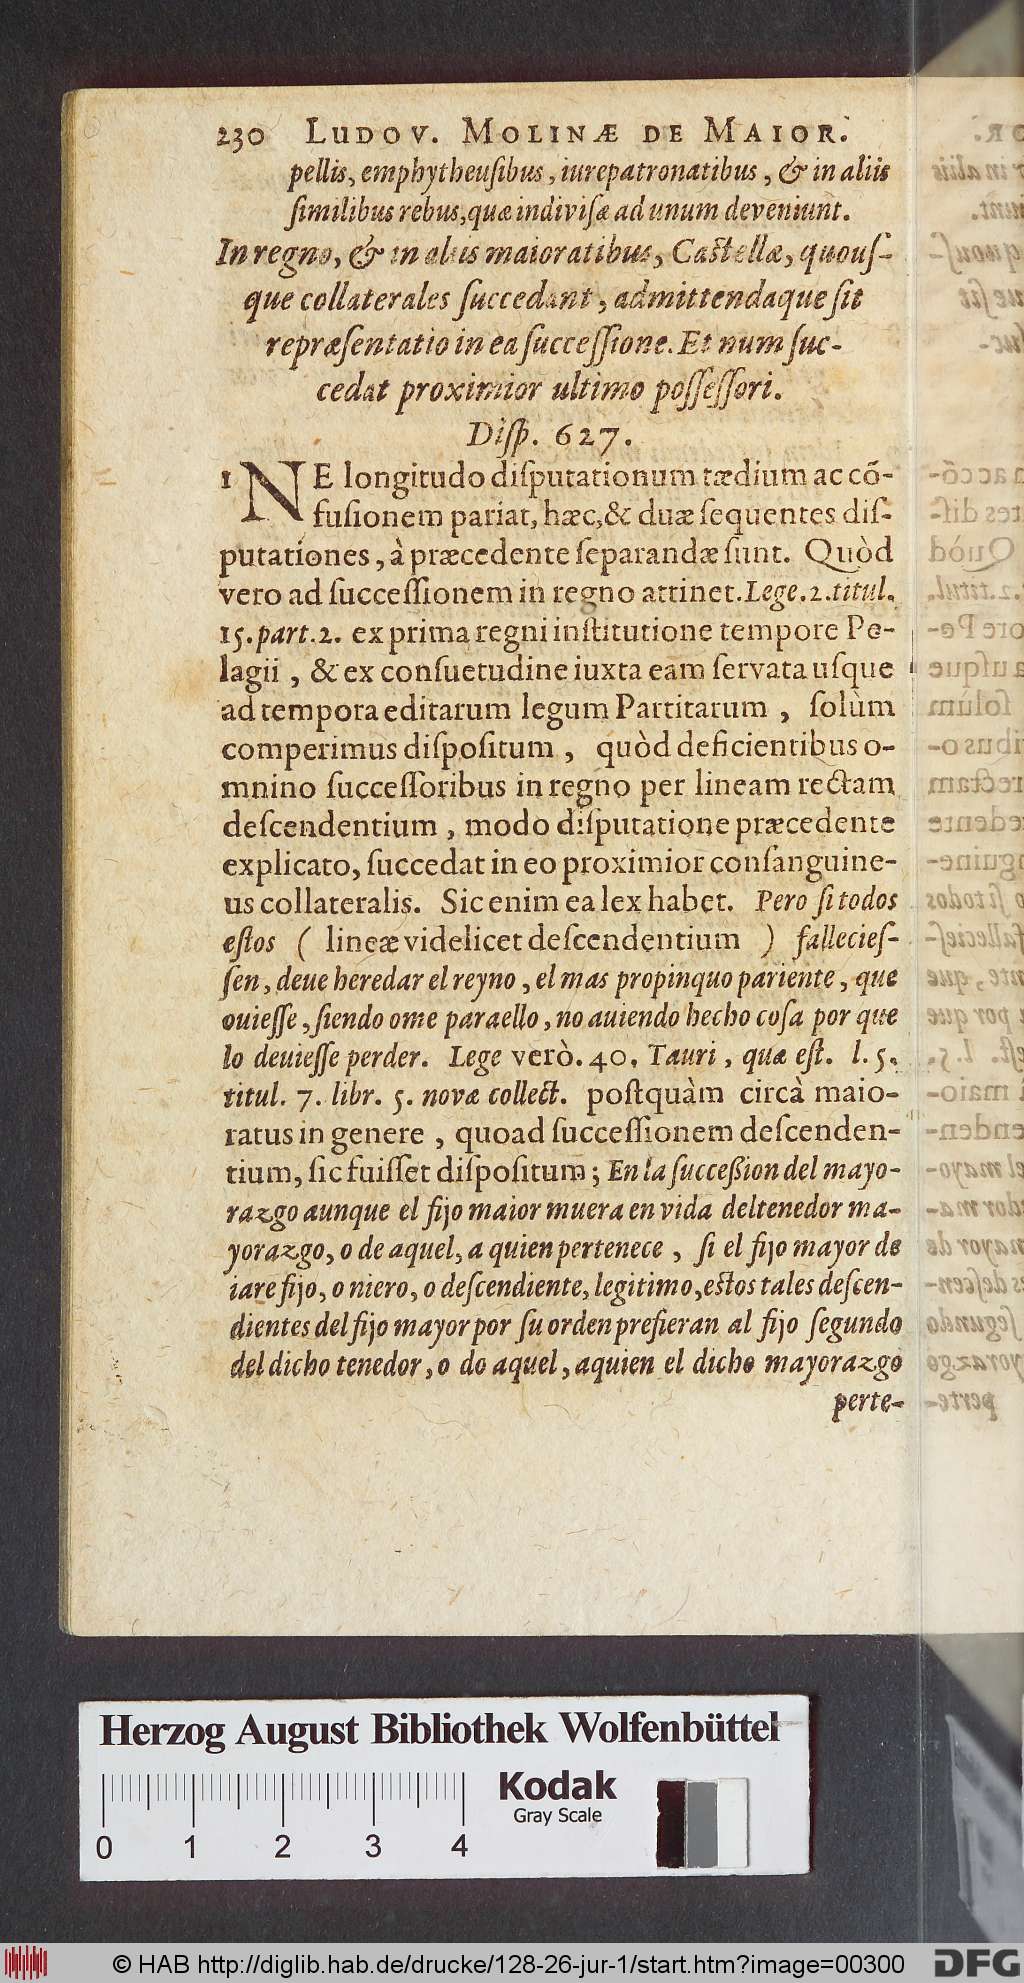 230 LUDOV. MOLINÆ DE MAIOR.
pellis, emphytheuſibus, iurepatronatibus, & in aliis
ſimilibus rebus, quæ indiviſæ ad unum deveniunt.
In regno, & in aliis maioratibus, Caſtellæ, quouſ-
que collaterales ſuccedant, admittendaque ſit
repræſentatio in ea ſucceſſione. Et num ſuc-
cedat proximior ultimo poſſeſſori.
Diſp. 627.
1 NE longitudo diſputationum tædium ac cõ-
fuſionem pariat, hæc, & duæ ſequentes diſ-
putationes, à præcedente ſeparandæ ſunt. Quòd
vero ad ſucceſſionem in regno attinet. Lege. 2. titul.
15. part. 2. ex prima regni inſtitutione tempore Pe-
lagii, & ex conſuetudine iuxta eam ſervata uſque
ad tempora editarum legum Partitarum, ſolùm
comperimus diſpoſitum, quòd deficientibus o-
mnino ſucceſſoribus in regno per lineam rectam
deſcendentium, modo diſputatione præcedente
explicato, ſuccedat in eo proximior conſanguine-
us collateralis. Sic enim ea lex habet. Pero ſi todos
eſtos ( lineæ videlicet deſcendentium ) fallecieſ-
ſen, deue heredar el reyno, el mas propinquo pariente, que
ouieſſe, ſiendo ome paraello, no auiendo hecho coſa por que
lo deuieſſe perder. Lege verò. 40. Tauri, quæ eſt. l. 5.
titul. 7. libr. 5. novæ collect. poſtquàm circà maio-
ratus in genere, quoad ſucceſſionem deſcenden-
tium, ſic fuiſſet diſpoſitum; En la ſucceſsion del mayo-
razgo aunque el fijo maior muera en vida deltenedor ma-
yorazgo, o de aquel, a quien pertenece, ſi el fijo mayor de
iare fijo, o niero, o deſcendiente, legitimo, eſtos tales deſcen-
dientes del fijo mayor por ſu orden prefieran al fijo ſegundo
del dicho tenedor, o do aquel, aquien el dicho mayorazgo
perte-
Herzog August Bibliothek Wolfenbüttel
Kodak
Gray Scale
0 1 2 3 4
© HAB http://diglib.hab.de/drucke/128-26-jur-1/start.htm?image=00300 DFG